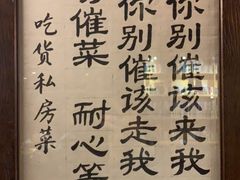 你别催该来我
你别催该走我
催菜 耐心等
吃货私房菜